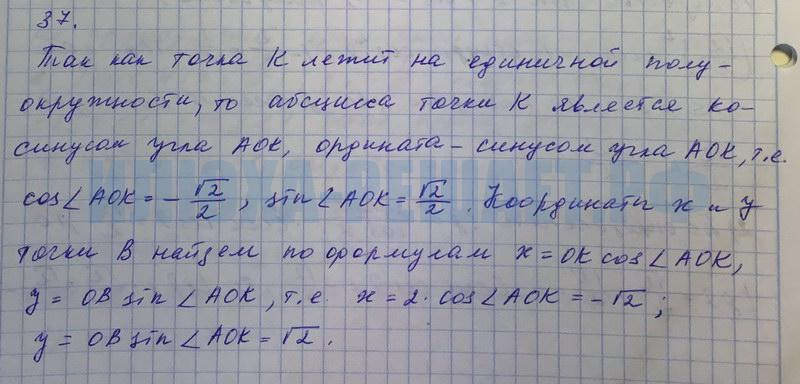 37.
Так как точка K лежит на единичной полу-
окружности, то абсцисса точки K является ко-
синусом угла AOK, ордината – синусом угла AOK, т.е.
cos∠AOK = -√2/2, sin∠AOK = √2/2. Координаты x и y
точки B найдем по формулам x = OK cos∠AOK,
y = OB sin∠AOK, т.е. x = 2·cos∠AOK = -√2;
y = OB sin∠AOK = √2.